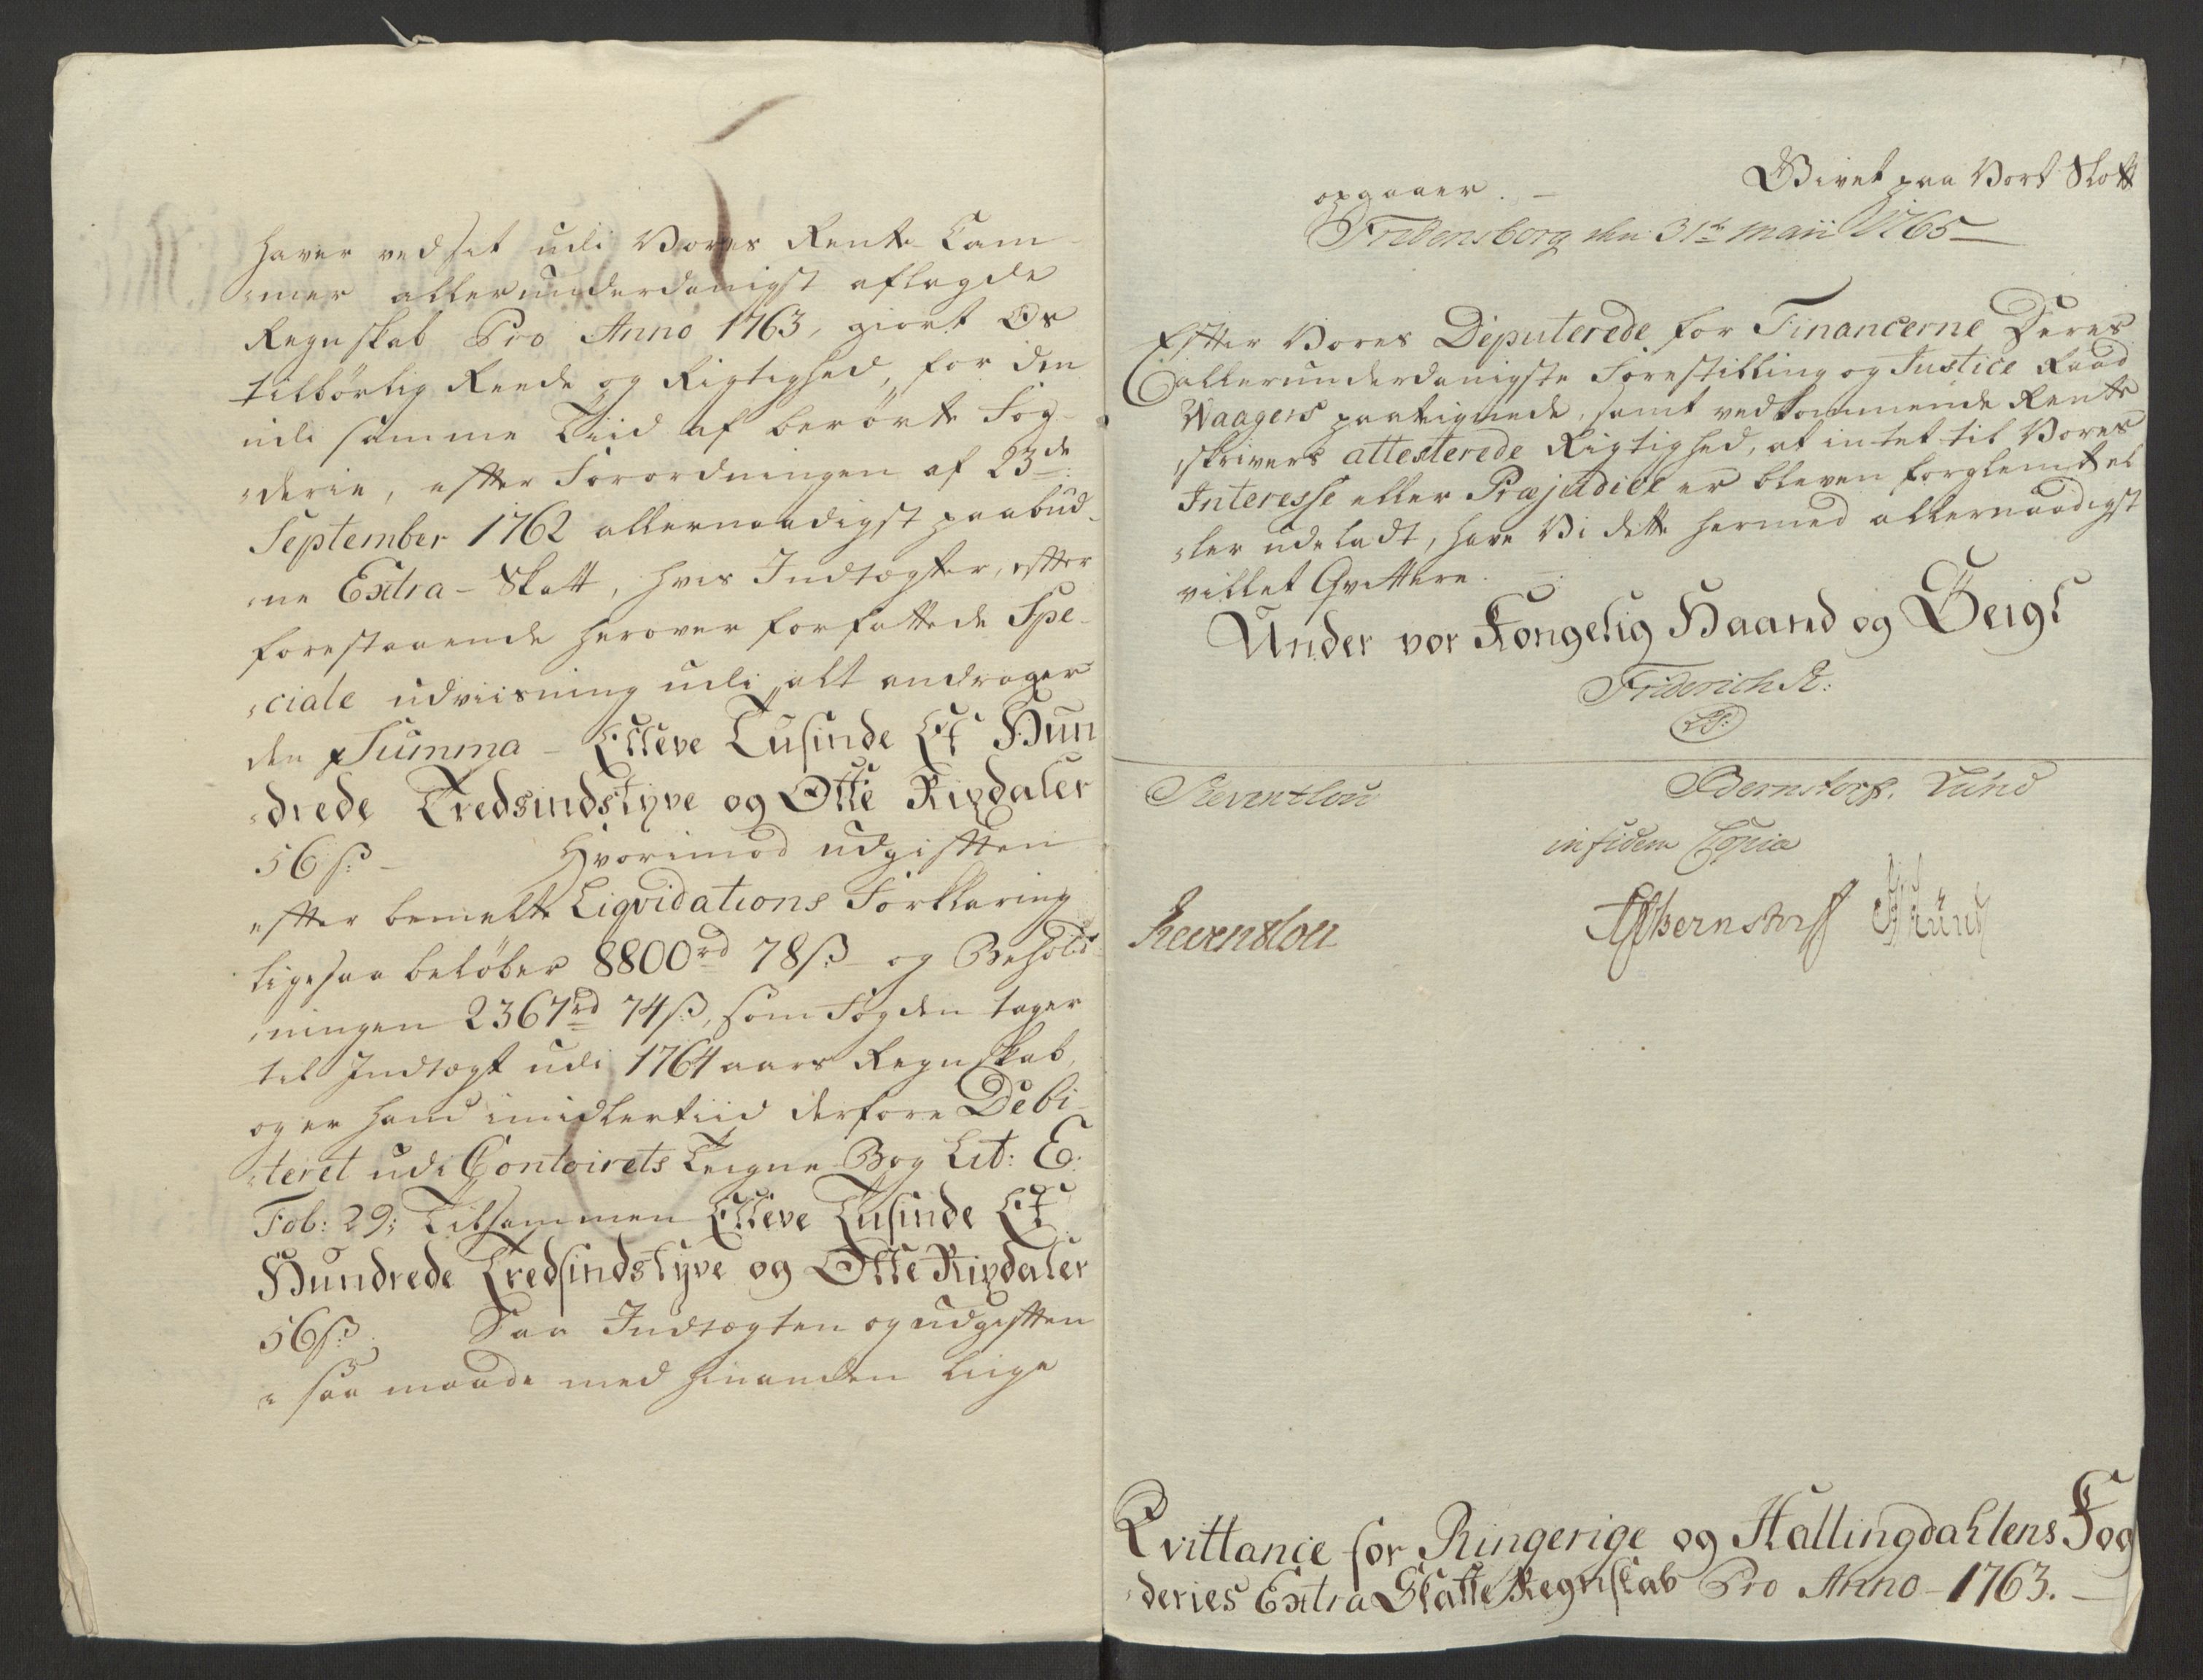 haver ved sit udi Vores Rente-Cam-
mer allerunderdanigst aflagde
Regnskab Pro Anno 1763, giort Os
tilbørlig Reede og Rigtighed, for den
udi samme Tiid af berørte Fog-
derie, efter Forordningen af 23de
September 1762 allernaadigst paabud-
ne Extra-Skatt, hvis Indtægter, efter
forestaaende herover forfattede Spe-
ciale udviisning udi alt andrager
den Summa - Elleve Tusinde Et Hun
drede Tredsindstyve og Otte Rixdaler
56 ß: - Hvorimod udgiften
efter bemelte Liqvidations Forklaring
ligesaa beløber 8800rd 78ß og Behold-
ningen 2367rd 74ß, som Fogden tager
til Indtægt udi 1764 aars Regnskab,
og er hand imidlertiid derfore Debi-
teret udi Contoirets Teigne-Bog Lit: E.
Fol: 29; Tilsammen Elleve Tusinde Et
Hundrede Tredsindstyve og Otte Rixdaler
56ß: Saa Indtægten og udgiften
i saa maade med hinanden liige
opgaaer. - Givet paa Vort Slott
Fredensborg den 31te Maii 1765 -
Efter Vores Deputerede for Financerne Deres
allerunderdanigste Forestilling og Justice Raad
Waagers paategnede, samt vedkommende Rente
skrivers attesterede Rigtighed, at intet til Vores
Interesse eller Præjudice er bleven forglemt el
ler udeladt, have Vi dette hermed allernaadigst
villet Qvittere.
Under vor Kongelig Haand og Zeigl
Friderich R:
LS:
Reventlou Bernstorff. Lünd
in fidem Copia
Reventlou Bernstorff Lünd
Qvittance for Ringerige og Hallingdahlens Fog
deries Extra Skatte Regnskab Pro Anno 1763. -